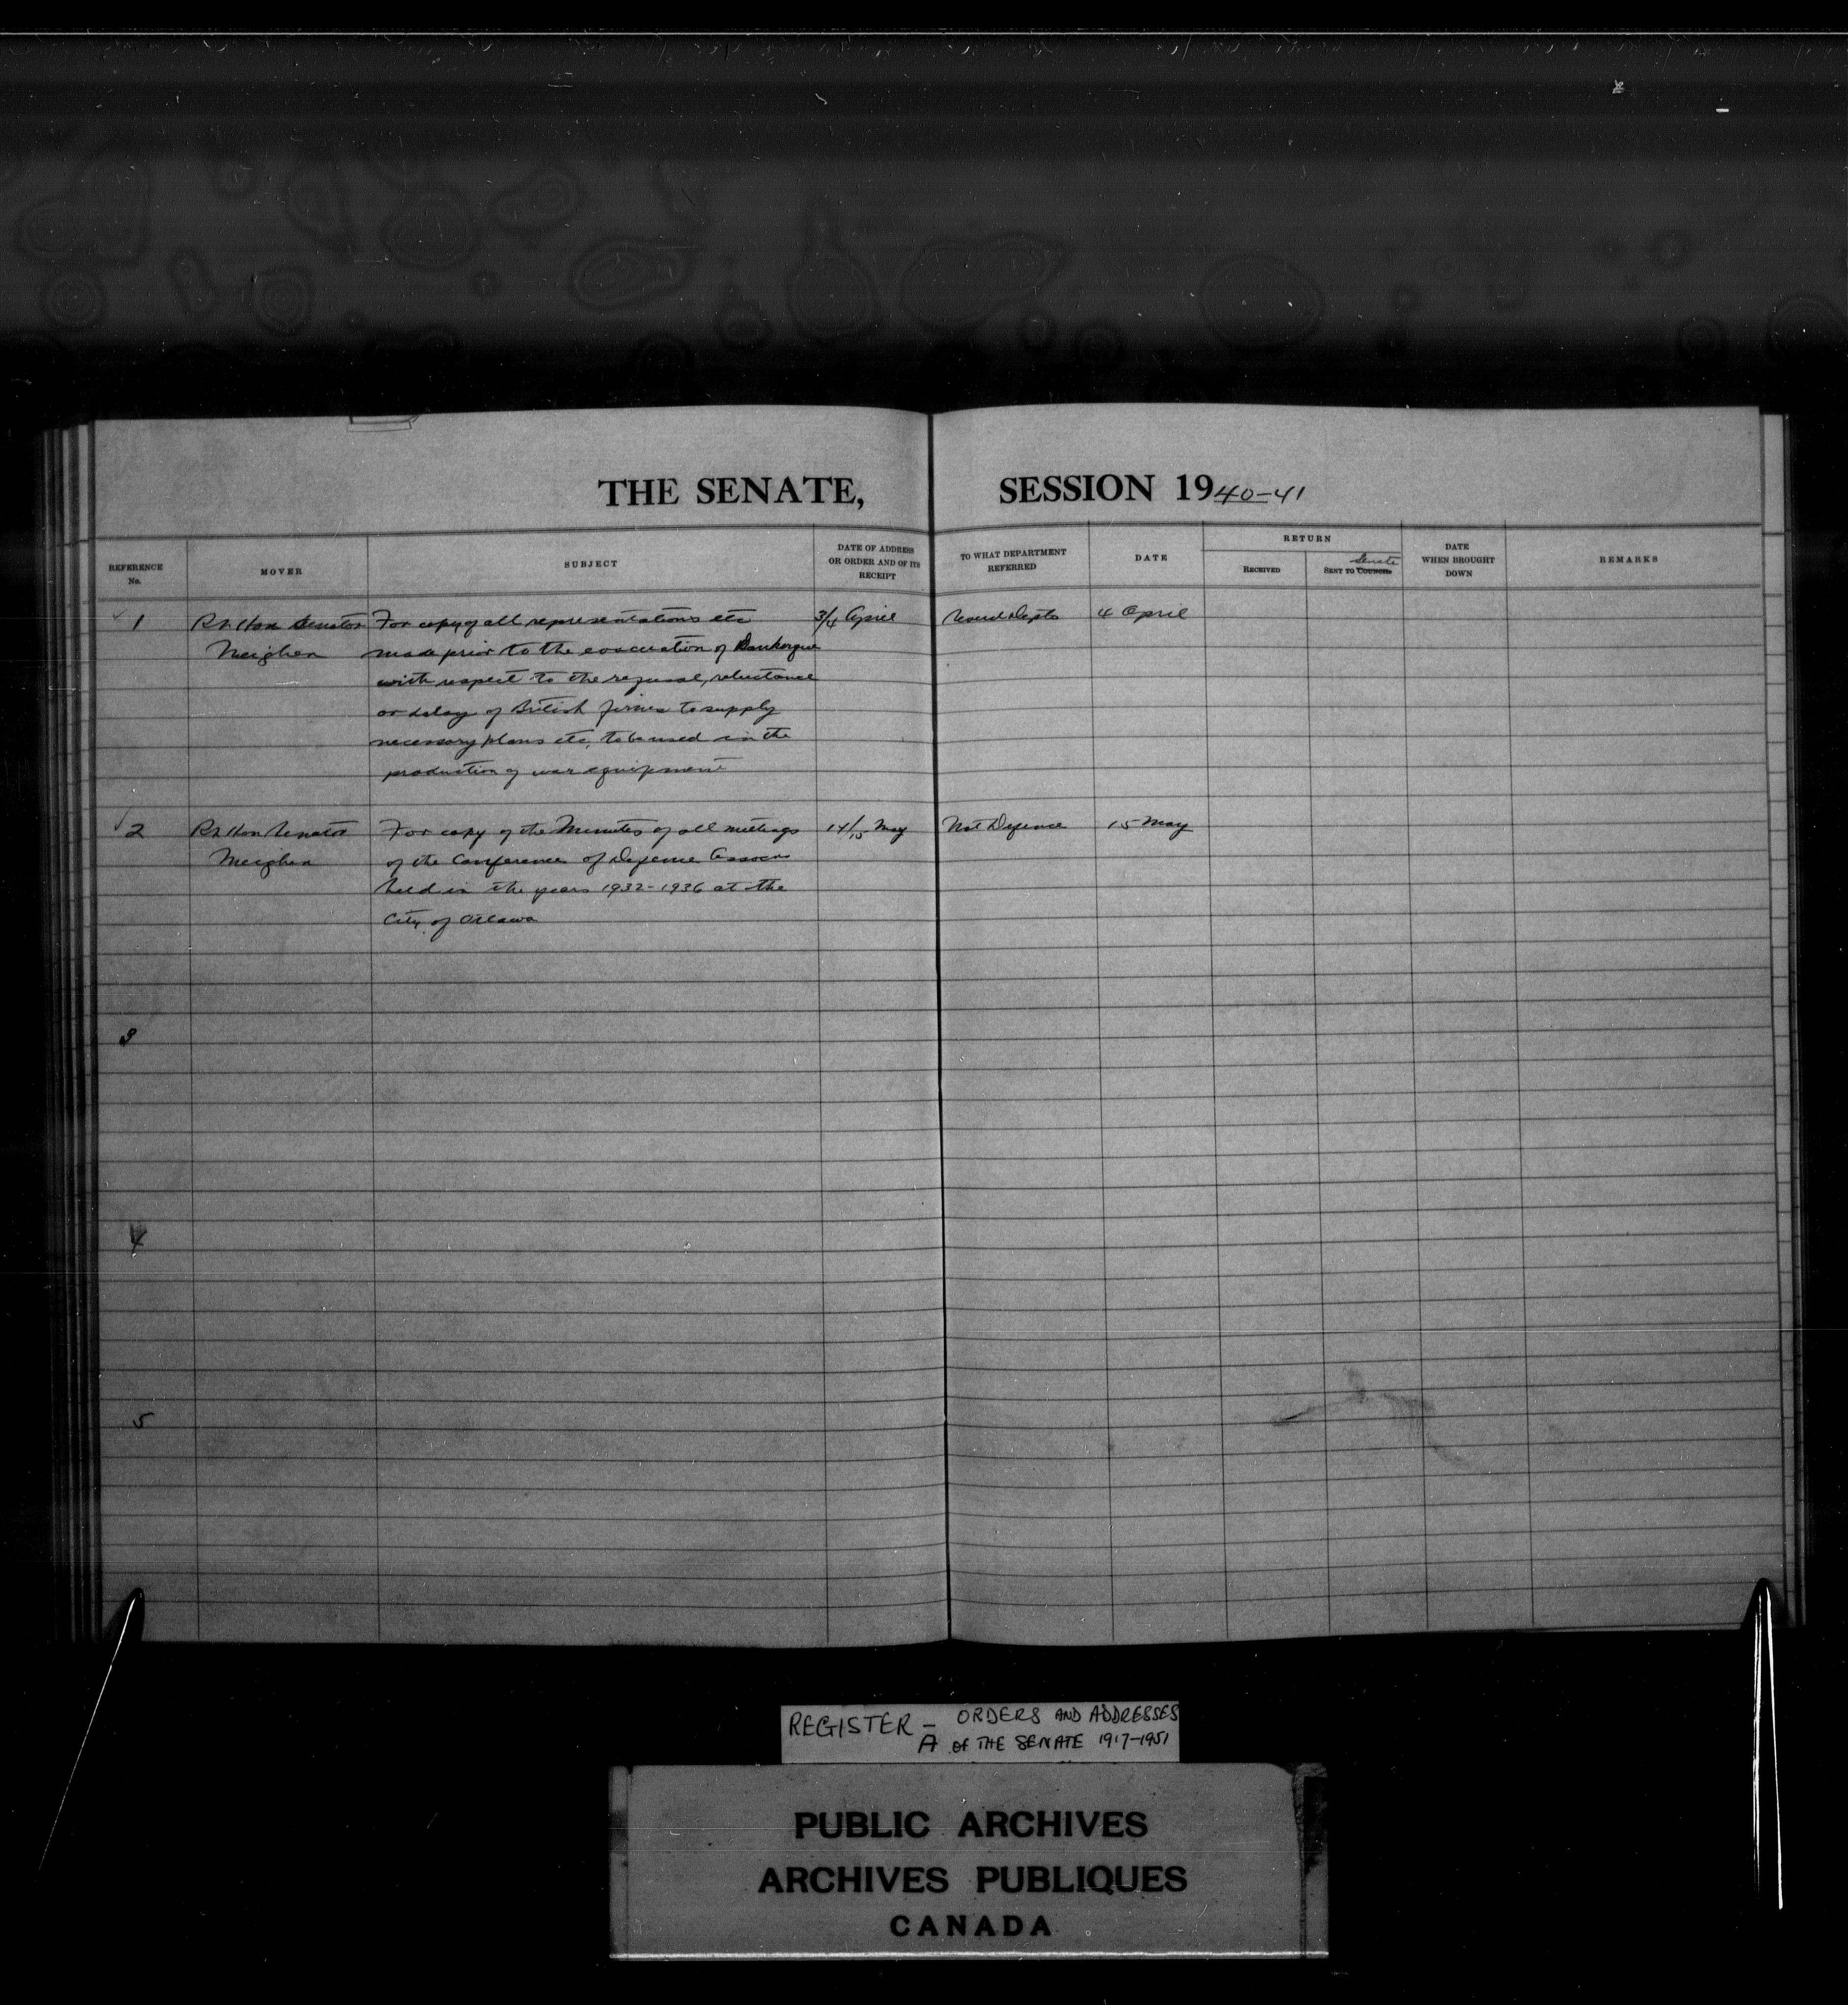 THE SENATE, SESSION 1940-41
REFERENCE No.
MOVER
SUBJECT
DATE OF ADDRESS OR ORDER AND OF ITS RECEIPT
TO WHAT DEPARTMENT REFERRED
DATE
RETURN
RECEIVED
SENT TO COUNCIL Senate
DATE WHEN BROUGHT DOWN
REMARKS
1 Rt Hon Senator For copy of all representations etc 3/4 April Depts 4 April
Meighen made prior to the evacuation of Dunkerque
with respect to the refusal, reluctance
or delay of British firms to supply
necessary plans etc, to be used in the
production of war equipment
2 Rt Hon Senator For copy of the Minutes of all meetings 14/15 May Nat Defence 15 May
Meighen of the Conference of Defence Assocns
held in the years 1932-1936 at the
City of Ottawa
3
4
5
REGISTER - ORDERS AND ADDRESSES
A OF THE SENATE 1917-1951
PUBLIC ARCHIVES
ARCHIVES PUBLIQUES
CANADA